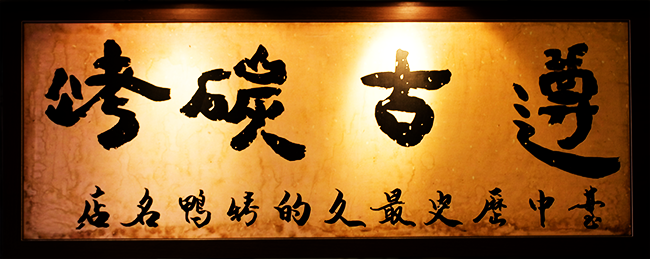 遵古碳烤
臺中歷史最久的烤鴨名店